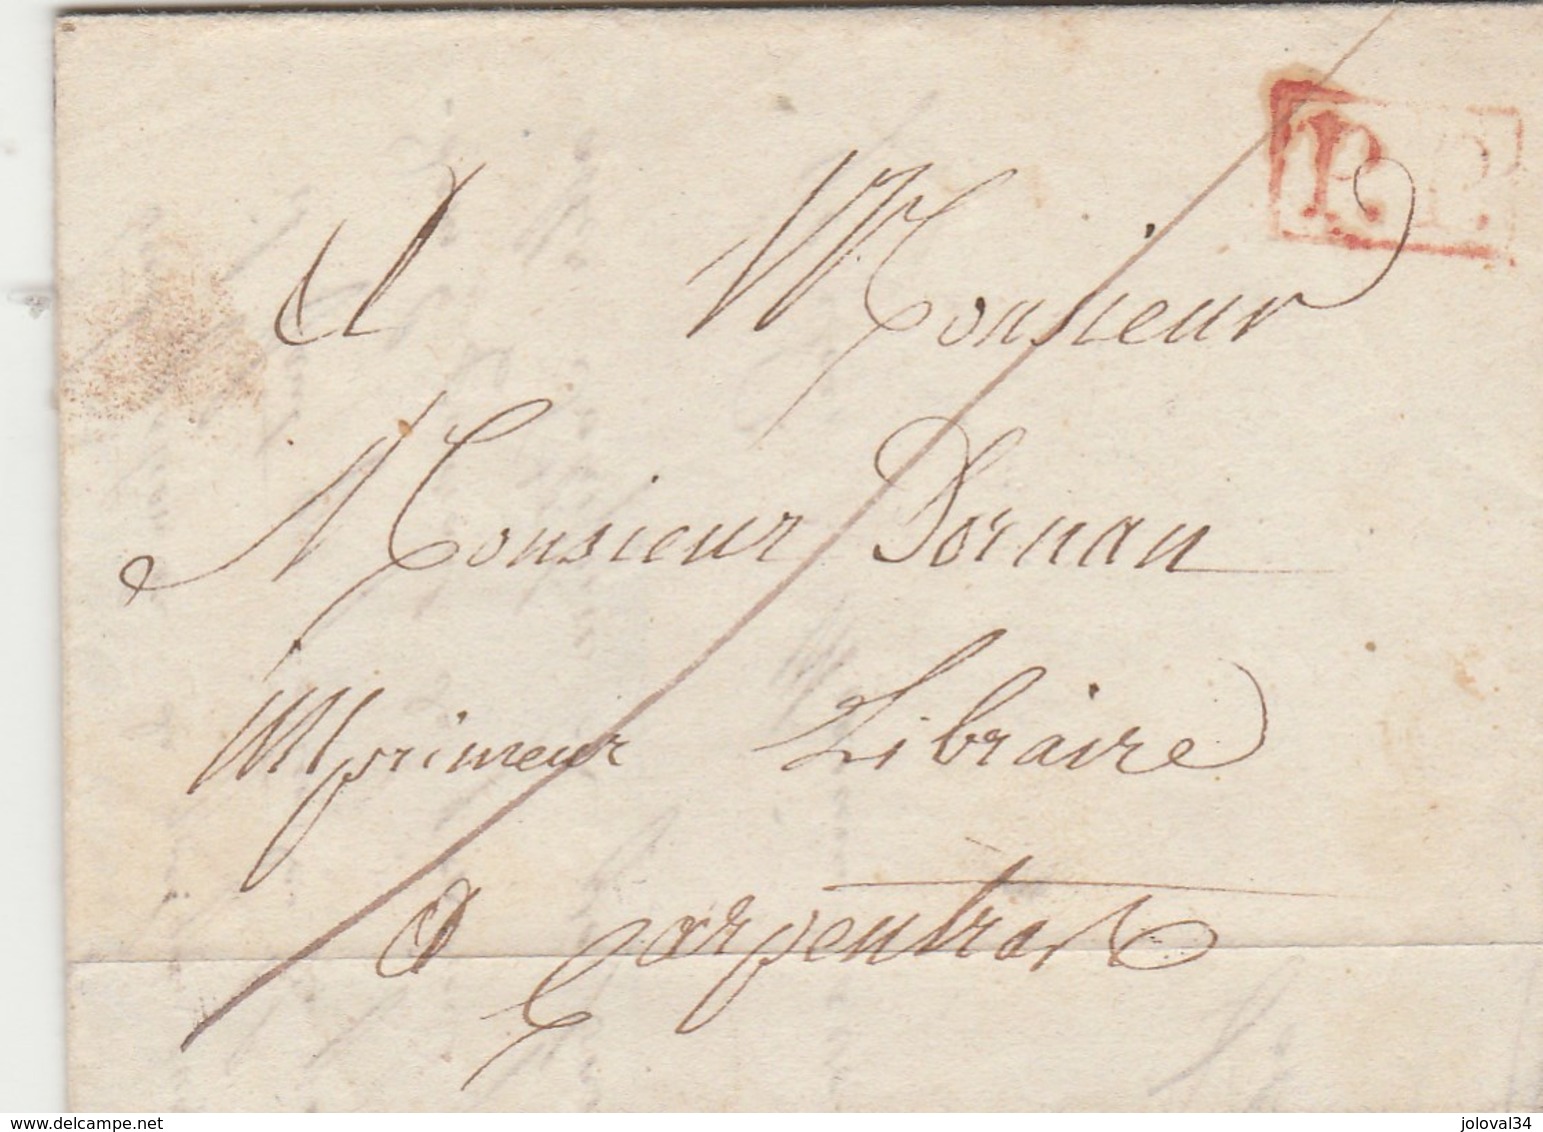 P.P.
A Monsieur
Monsieur Dornan
Imprimeur Libraire
A Carpentras
delcampe.net
joloval34